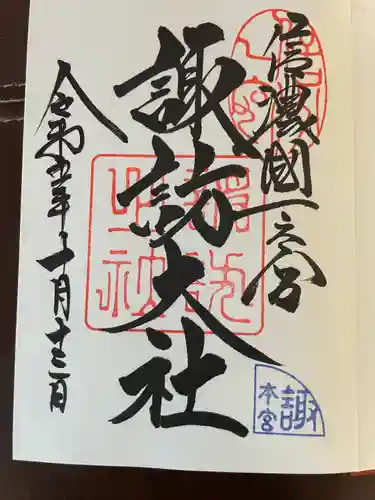 信濃國一之宮
諏訪大社
令和五年十一月十三日
諏
本宮